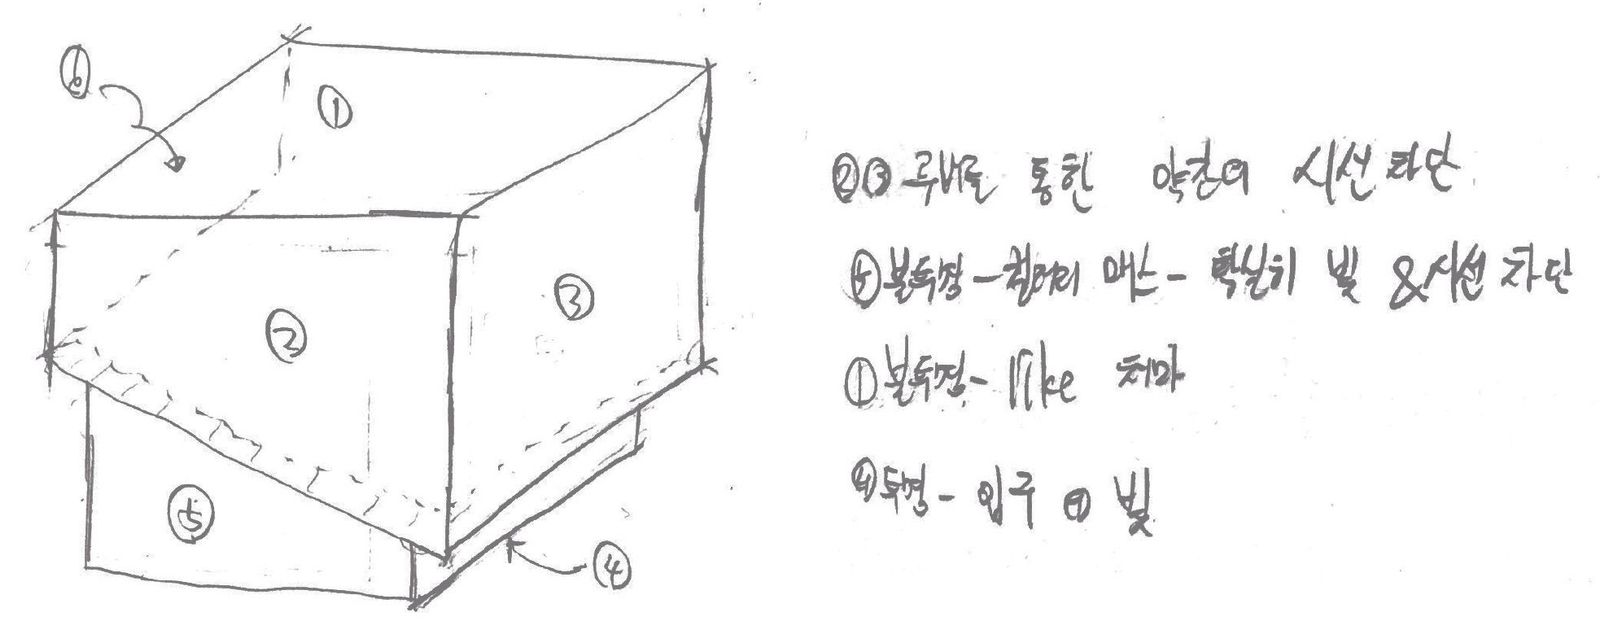 ⑥
①
②
③
⑤
④
②③ 루버로 통한 약간의 시선차단
⑤ 불투명 - 컬러 매스 - 확실히 빛 & 시선 차단
① 불투명 - like 처마
④ 투명 - 입구 빛